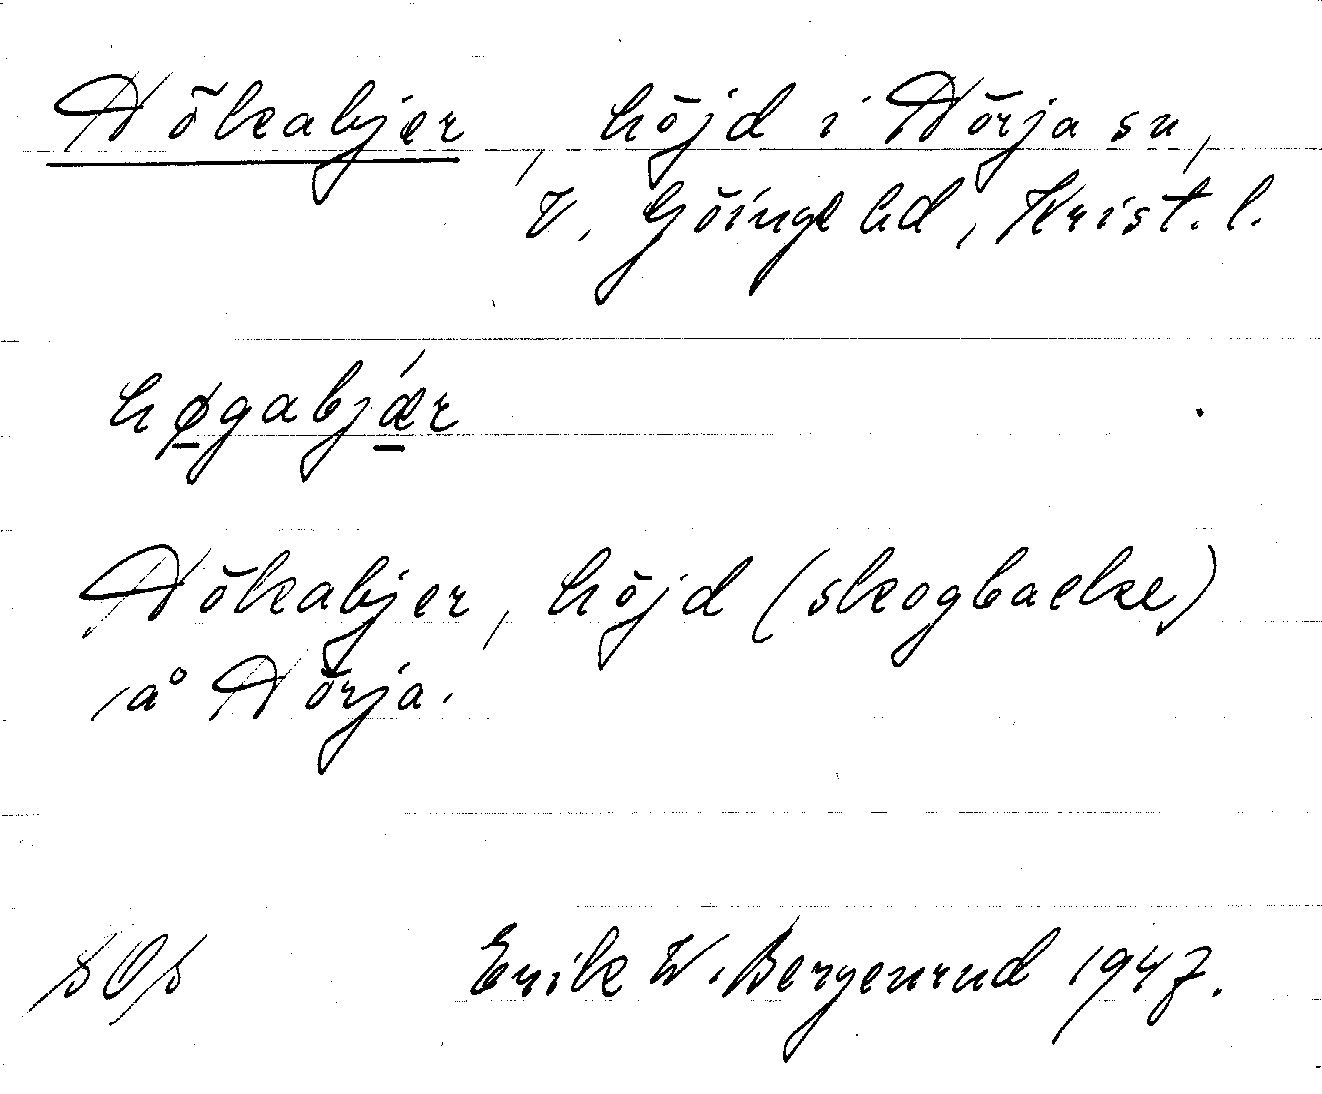 Hökabjer, höjd i Hörja sn,
V. Göinge hd, Krist. l.
høgabjǽr
Hökabjer, höjd (skogbacke)
/å Hörja.
SOS Erik W. Bergenrud 1947.